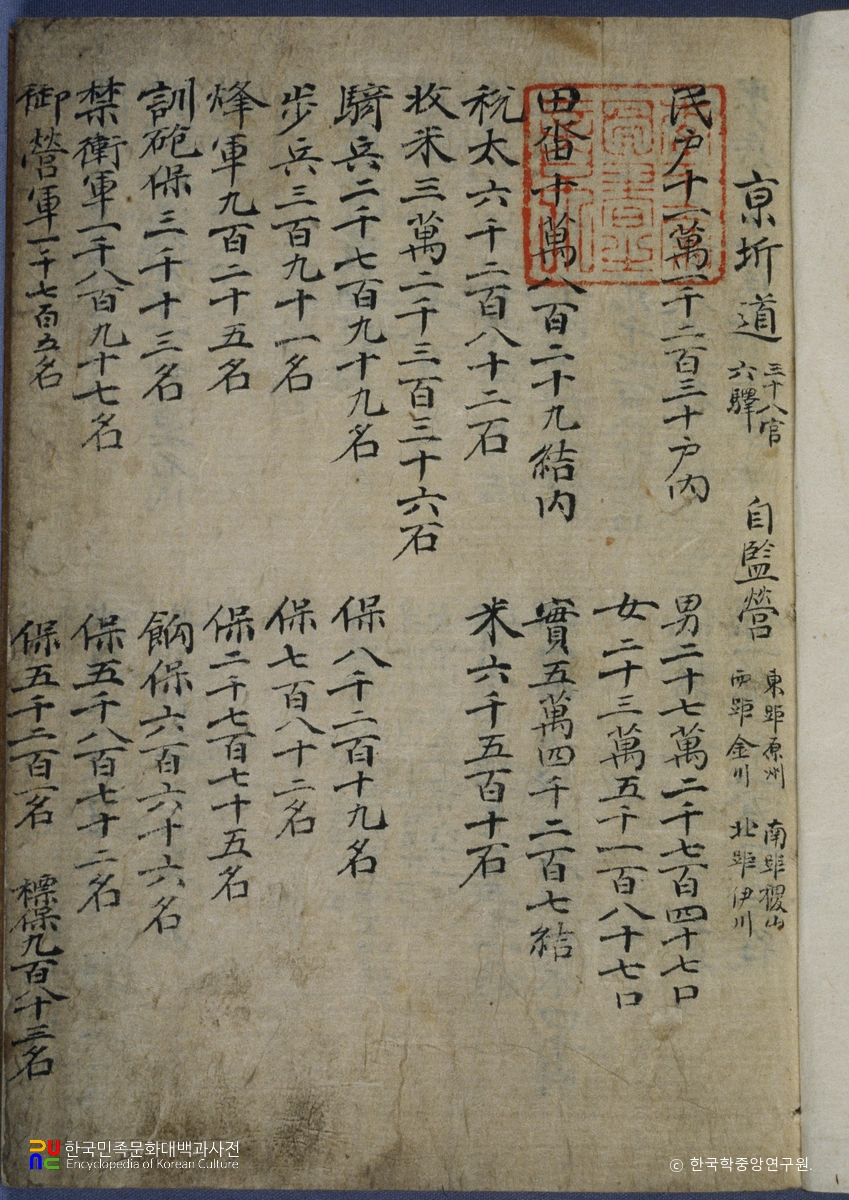 京圻道 三十八官 六驛 自監營 東距原州 西距金川 南距稷山 北距伊川
民户十一萬一千二百三十户内 男二十七萬二千七百四十七口
女二十三萬五千一百八十七口
田畓十萬八百二十九結内 實五萬四千二百七結
稅太六千二百八十二石 米六千五百十石
收米三萬二千三百三十六石
騎兵二千七百九十九名 保八千二百十九名
步兵三百九十一名 保七百八十二名
烽軍九百二十五名 保二千七百七十五名
訓砲保三千十三名 餉保六百六十六名
禁衛軍一千八百九十七名 保五千八百七十二名
御營軍一千七百五名 保五千二百一名 標保九百八十三名
한국민족문화대백과사전
Encyclopedia of Korean Culture
© 한국학중앙연구원.